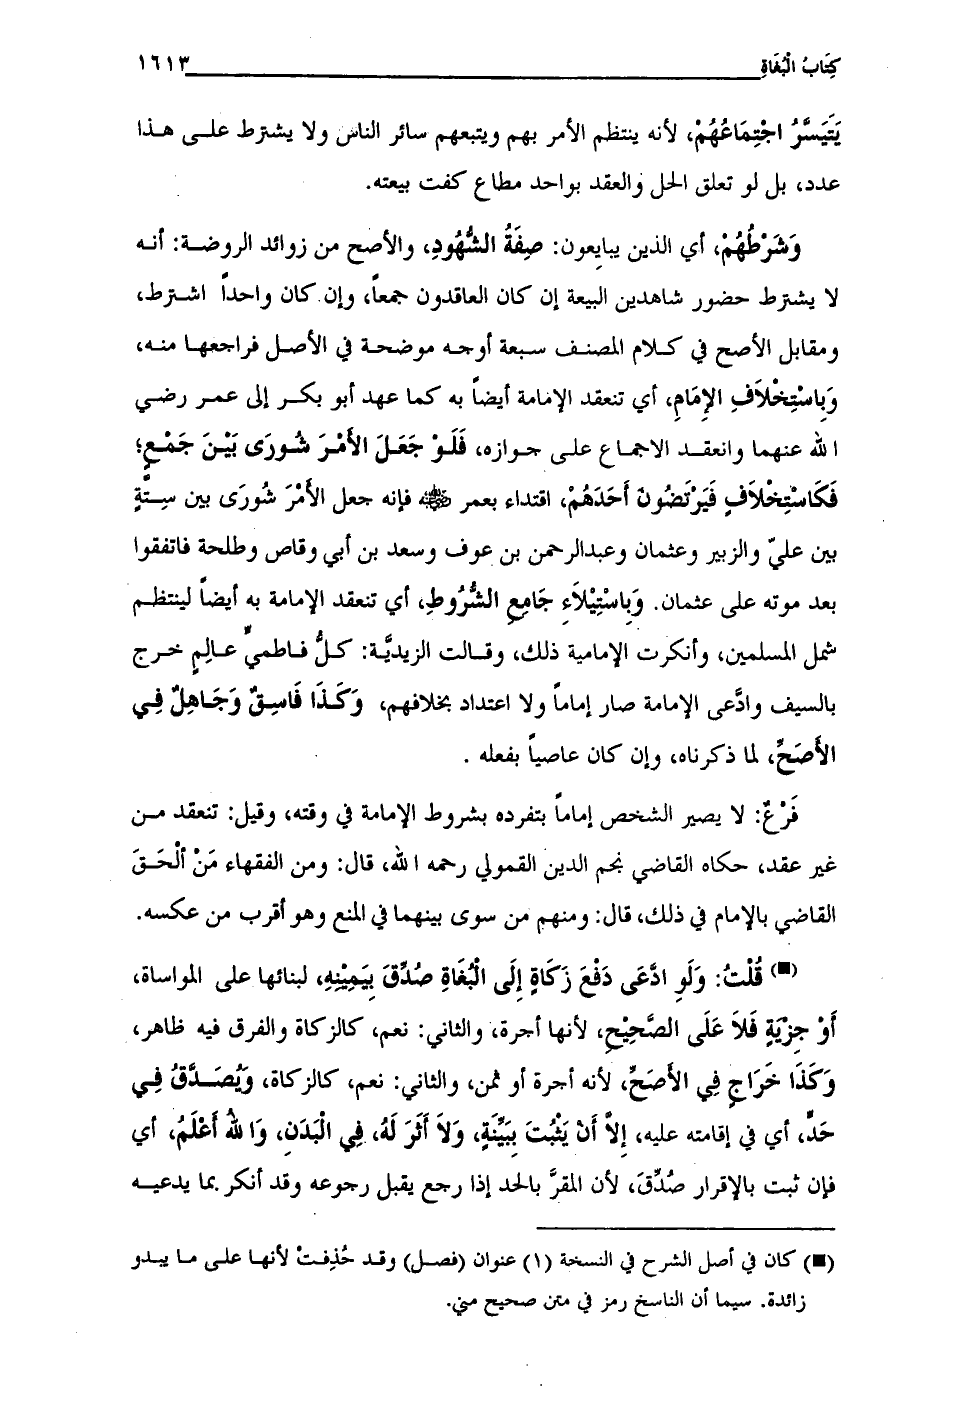 كِتَابُ الْبُغَاةِ ١٦١٣
يَتَيَسَّرُ اجْتِمَاعُهُمْ، لأنه ينتظم الأمر بهم ويتبعهم سائر الناس ولا يشترط على هذا
عدد، بل لو تعلق الحل والعقد بواحد مطاع كفت بيعته.
وَشَرْطُهُمْ، أي الذين يبايعون: صِفَةُ الشُّهُودِ، والأصح من زوائد الروضة: أنه
لا يشترط حضور شاهدين البيعة إن كان العاقدون جمعاً، وإن كان واحداً اشترط،
ومقابل الأصح في كلام المصنف سبعة أوجه موضحة في الأصل فراجعها منه،
وَبِاسْتِخْلاَفِ الإِمَامِ، أي تنعقد الإمامة أيضاً به كما عهد أبو بكر إلى عمر رضي
الله عنهما وانعقد الاجماع على جوازه، فَلَوْ جَعَلَ الأَمْرَ شُورَى بَيْنَ جَمْعٍ؛
فَكَاسْتِخْلاَفٍ فَيَرْتَضُونَ أَحَدَهُمْ، اقتداء بعمر ﷺ فإنه جعل الأَمْرَ شُورَى بين سِتَّةٍ
بين عليّ والزبير وعثمان وعبدالرحمن بن عوف وسعد بن أبي وقاص وطلحة فاتفقوا
بعد موته على عثمان. وَبِاسْتِيْلاَءِ جَامِعِ الشُّرُوطِ، أي تنعقد الإمامة به أيضاً لينتظم
شمل المسلمين، وأنكرت الإمامية ذلك، وقالت الزيديَّة: كلُّ فاطميٍّ عالِمٍ خرج
بالسيف وادَّعى الإمامة صار إماماً ولا اعتداد بخلافهم، وَكَذَا فَاسِقٌ وَجَاهِلٌ فِي
الأَصَحِّ، لما ذكرناه، وإن كان عاصياً بفعله .
فَرْعٌ: لا يصير الشخص إماماً بتفرده بشروط الإمامة في وقته، وقيل: تنعقد من
غير عقد، حكاه القاضي نجم الدين القمولي رحمه الله، قال: ومن الفقهاء مَنْ ألْحَقَ
القاضي بالإمام في ذلك، قال: ومنهم من سوى بينهما في المنع وهو أقرب من عكسه.
(■) قُلْتُ: وَلَوِ ادَّعَى دَفْعَ زَكَاةٍ إِلَى الْبُغَاةِ صُدِّقَ بِيَمِيْنِهِ، لبنائها على المواساة،
أَوْ جِزْيَةٍ فَلاَ عَلَى الصَّحِيْحِ، لأنها أجرة، والثاني: نعم، كالزكاة والفرق فيه ظاهر،
وَكَذَا خَرَاجٍ فِي الأَصَحِّ، لأنه أجرة أو ثمن، والثاني: نعم، كالزكاة، وَيُصَدَّقُ فِي
حَدٍّ، أي في إقامته عليه، إِلاَّ أَنْ يَثْبُتَ بِبَيِّنَةٍ، وَلاَ أَثَرَ لَهُ، فِي الْبَدَنِ، وَاللهُ أَعْلَمُ، أي
فإن ثبت بالإقرار صُدِّقَ، لأن المقرَّ بالحد إذا رجع يقبل رجوعه وقد أنكر بما يدعيه
(■) كان في أصل الشرح في النسخة (١) عنوان (فصل) وقد حُذِفتْ لأنها على ما يبدو
زائدة. سيما أن الناسخ رمز في متن صحيح مني.